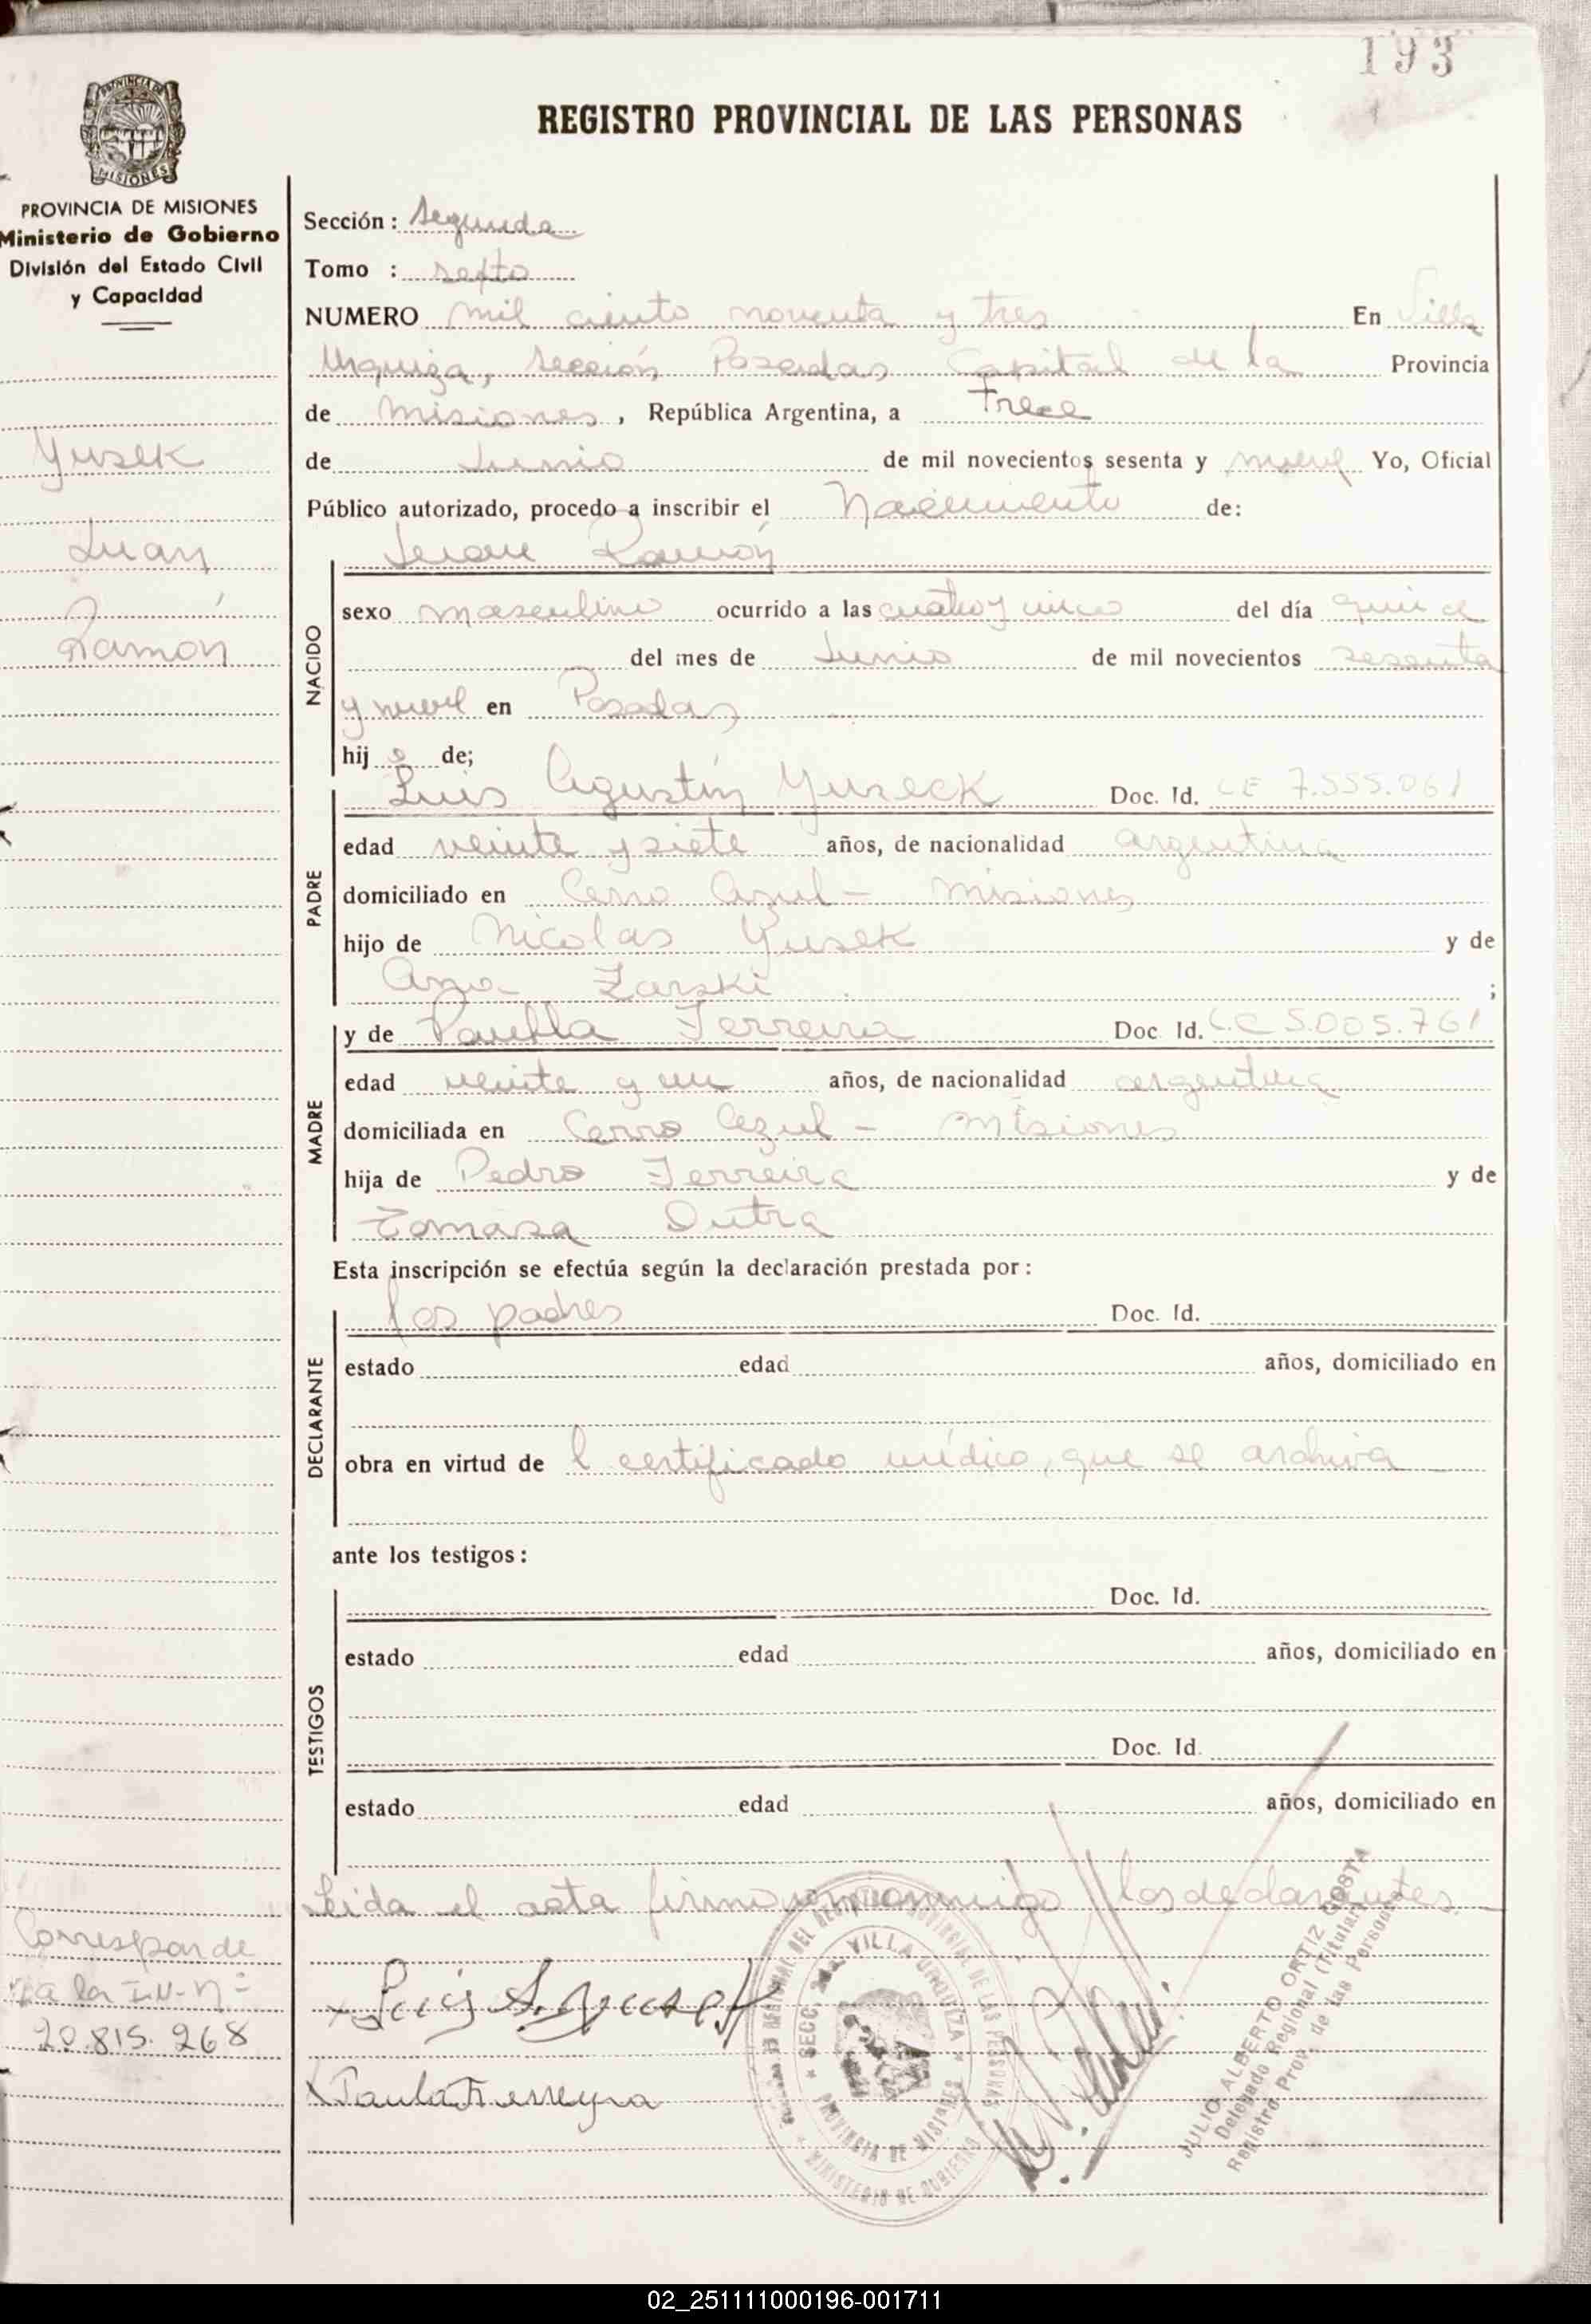 193
REGISTRO PROVINCIAL DE LAS PERSONAS
PROVINCIA DE MISIONES
MISIONES
PROVINCIA DE MISIONES
Ministerio de Gobierno
División del Estado Civil
y Capacidad
Yusek
Juan
Ramón
Corresponde
a la I.N-Nº
20.815.268
Sección: Segunda
Tomo : sexto
NUMERO mil ciento noventa y tres En Villa
Urquiza, Sección Posadas Capital de la Provincia
de Misiones, República Argentina, a Trece
de Junio de mil novecientos sesenta y nueve Yo, Oficial
Público autorizado, procedo a inscribir el Nacimiento de:
Juan Ramón
NACIDO
sexo masculino ocurrido a las cuatro y cinco del día
del mes de Junio de mil novecientos sesenta
y nueve en Posadas
hijo de;
PADRE
Luis Agustín Yuseck Doc. Id. C E 7.555.061
edad veinte y siete años, de nacionalidad argentina
domiciliado en Cerro Azul - Misiones
hijo de Nicolas Yusek y de
Ana Zarski ;
MADRE
y de Paulla Ferreira Doc. Id. C.C 5.005.761
edad veinte y un años, de nacionalidad argentina
domiciliada en Cerro Azul - Misiones
hija de Pedro Ferreira y de
Tomasa Dutra
Esta inscripción se efectúa según la declaración prestada por:
DECLARANTE
los padres Doc. Id.
estado edad años, domiciliado en
obra en virtud de l certificado médico, que se archiva
ante los testigos:
TESTIGOS
Doc. Id.
estado edad años, domiciliado en
Doc. Id.
estado edad años, domiciliado en
Leida el acta firman conmigo los declarantes.
x Luis A. Yusek
x Paula Ferreyra
SECC. 2da. VILLA URQUIZA
PROVINCIA DE MISIONES
MINISTERIO DE GOBIERNO
JULIO ALBERTO ORTIZ COSTA
Delegado Regional (Titular)
Registro Prov. de las Personas
02_251111000196-001711